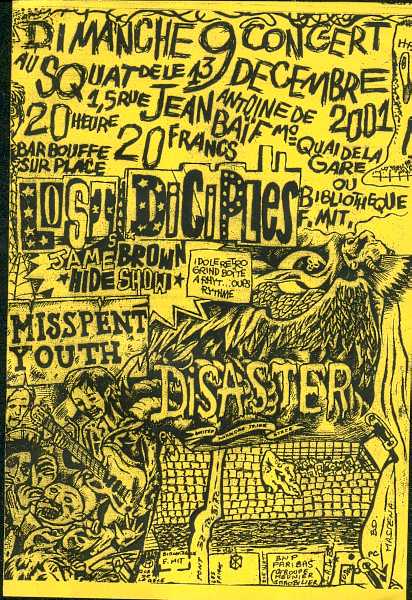 DIMANCHE 9 CONCERT
AU SQUAT DE LE 13 DECEMBRE
1,5 RUE JEAN ANTOINE DE BAÏF Mo QUAI DE LA GARE
2001
20 HEURE 20 FRANCS
OU BIBLIOTHEQUE F. MIT.
BAR BOUFFE
SUR PLACE
LOST DICIPLES
JAMES BROWN
HIDE SHOW
IDOLE RETRO
GRIND BOITE
A RHYT...OURS
RYTHME
MISSPENT
YOUTH
DISASTER
UNITED
TRIBE
BO. MADEMA
F. MIT
PONT
BNP
PARIBAS
GROUPE
MEUNIER
IMMOBILIER